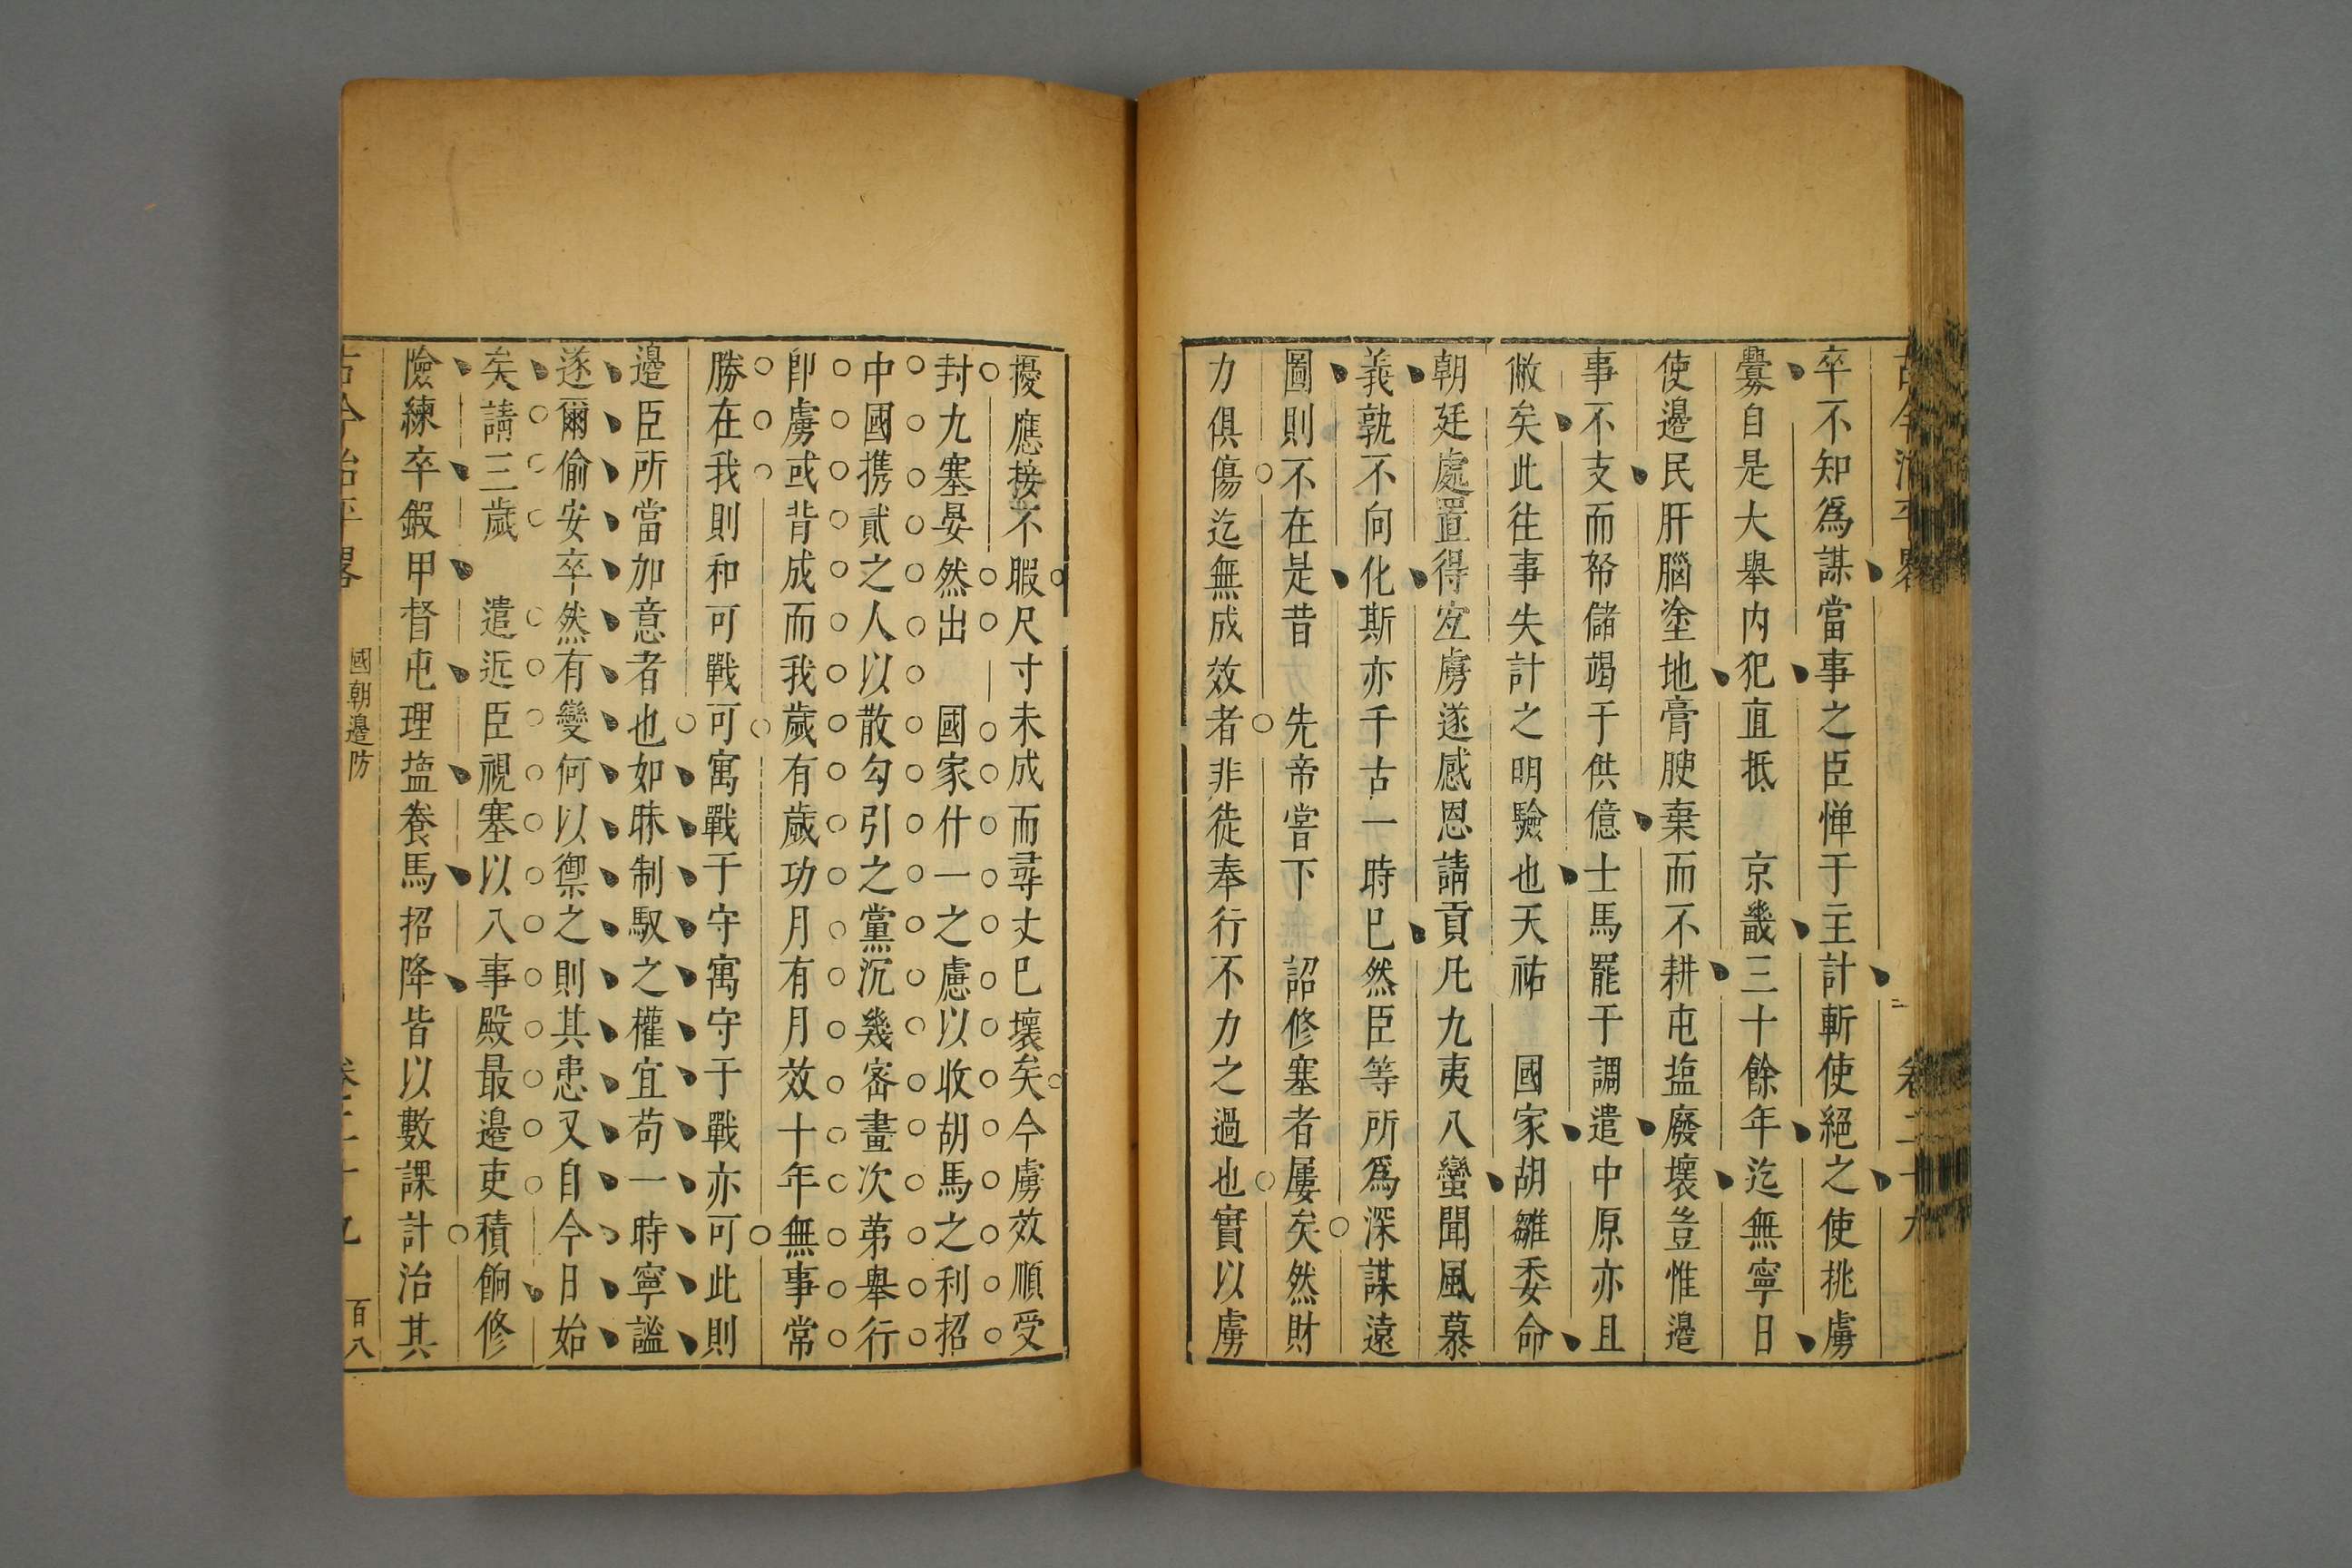 古今治平畧 三 卷二十九
卒不知爲謀當事之臣惮于主計斬使絕之使挑虜
釁自是大舉内犯直抵 京畿三十餘年迄無寧日
使邊民肝腦塗地膏腴棄而不耕屯塩廢壞豈惟邉
事不支而帑儲竭于供億士馬罷于調遣中原亦且
敝矣此往事失計之明驗也天祐 國家胡雛委命
朝廷處置得宐虜遂感恩請貢凡九夷八蠻聞風慕
義孰不向化斯亦千古一時已然臣等所爲深謀遠
圖則不在是昔 先帝嘗下 詔修塞者屢矣然財
力俱傷迄無成效者非徒奉行不力之過也實以虜
擾應接不暇尺寸未成而尋丈已壞矣今虜效順受
封九塞晏然出 國家什一之慮以收胡馬之利招
中國携貳之人以散勾引之黨沉幾宻畫次第舉行
卽虜或背成而我歲有歲功月有月效十年無事常
勝在我則和可戰可寓戰于守寓守于戰亦可此則
邉臣所當加意者也如昧制馭之權宜苟一時寧謐
遂爾偷安卒然有變何以禦之則其患又自今日始
矣請三歲 遣近臣視塞以八事殿最邉吏積餉修
險練卒鍜甲督屯理塩養馬招降皆以數課計治其
古今治平畧 國朝邉防 卷二十九 百八